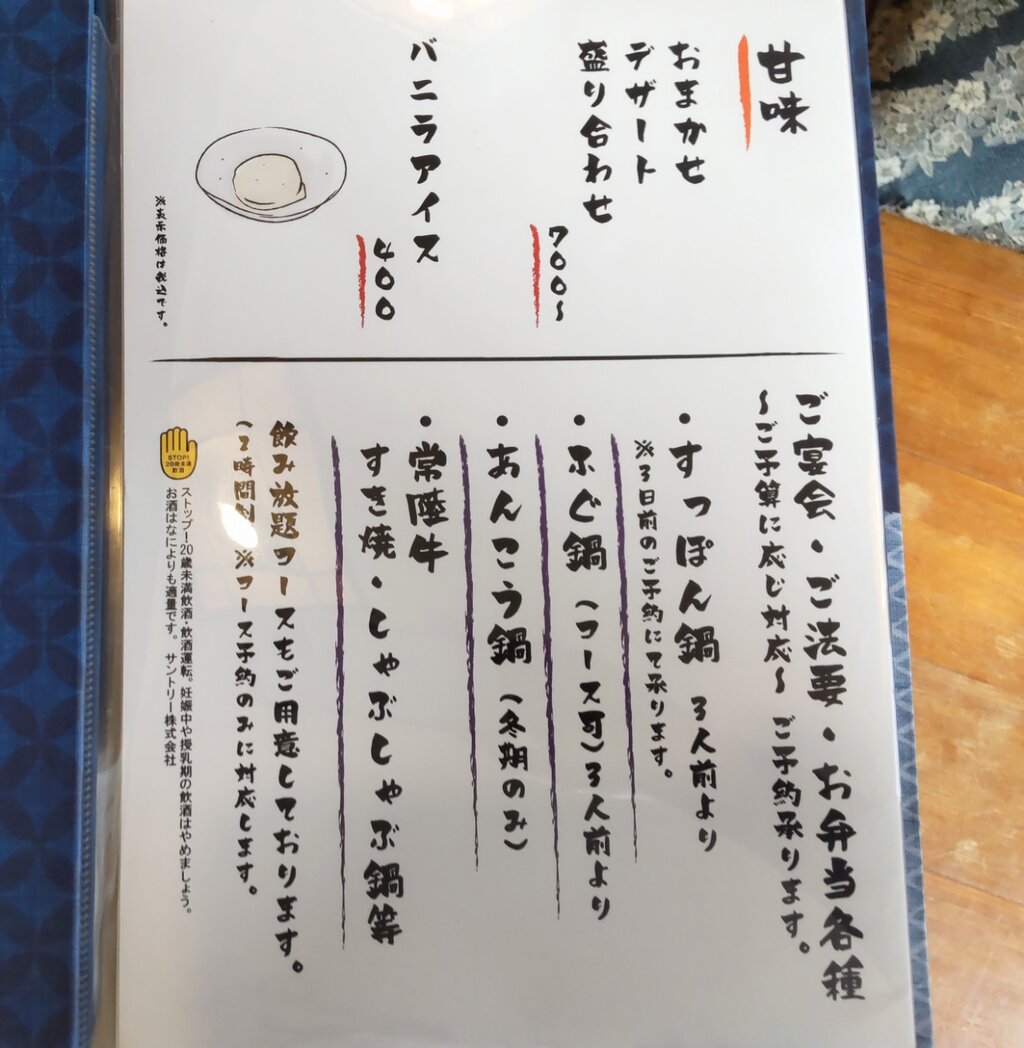 甘味
おまかせ
デザート
盛り合わせ
700～
バニラアイス
400
※表示価格は税込です。
ご宴会・ご法要・お弁当各種
～ご予算に応じ対応～ ご予約承ります。
・すっぽん鍋 3人前より
※3日前のご予約にて承ります。
・ふぐ鍋（コース可）3人前より
・あんこう鍋（冬期のみ）
・常陸牛
すき焼・しゃぶしゃぶ鍋等
飲み放題コースもご用意しております。
（2時間制 ※コース予約のみに対応します。
STOP!
20歳未満
飲酒
ストップ!20歳未満飲酒・飲酒運転。妊娠中や授乳期の飲酒はやめましょう。
お酒はなによりも適量です。 サントリー株式会社